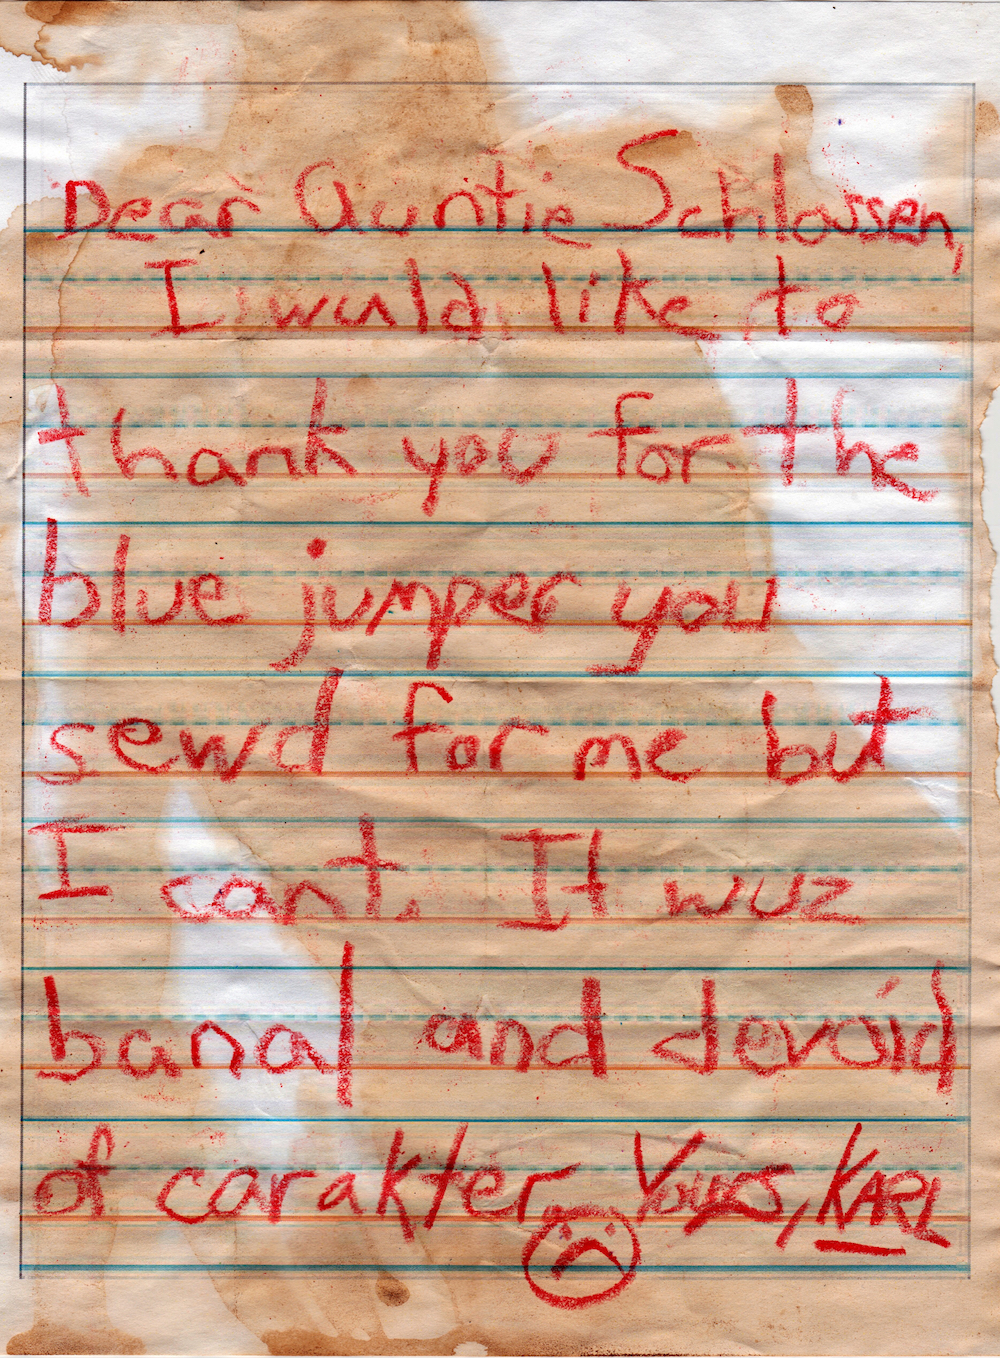 Dear Auntie Schlossen,
I wuld like to
thank you for the
blue jumper you
sewd for me but
I cant. It wuz
banal and devoid
of carakter Yours, KARL